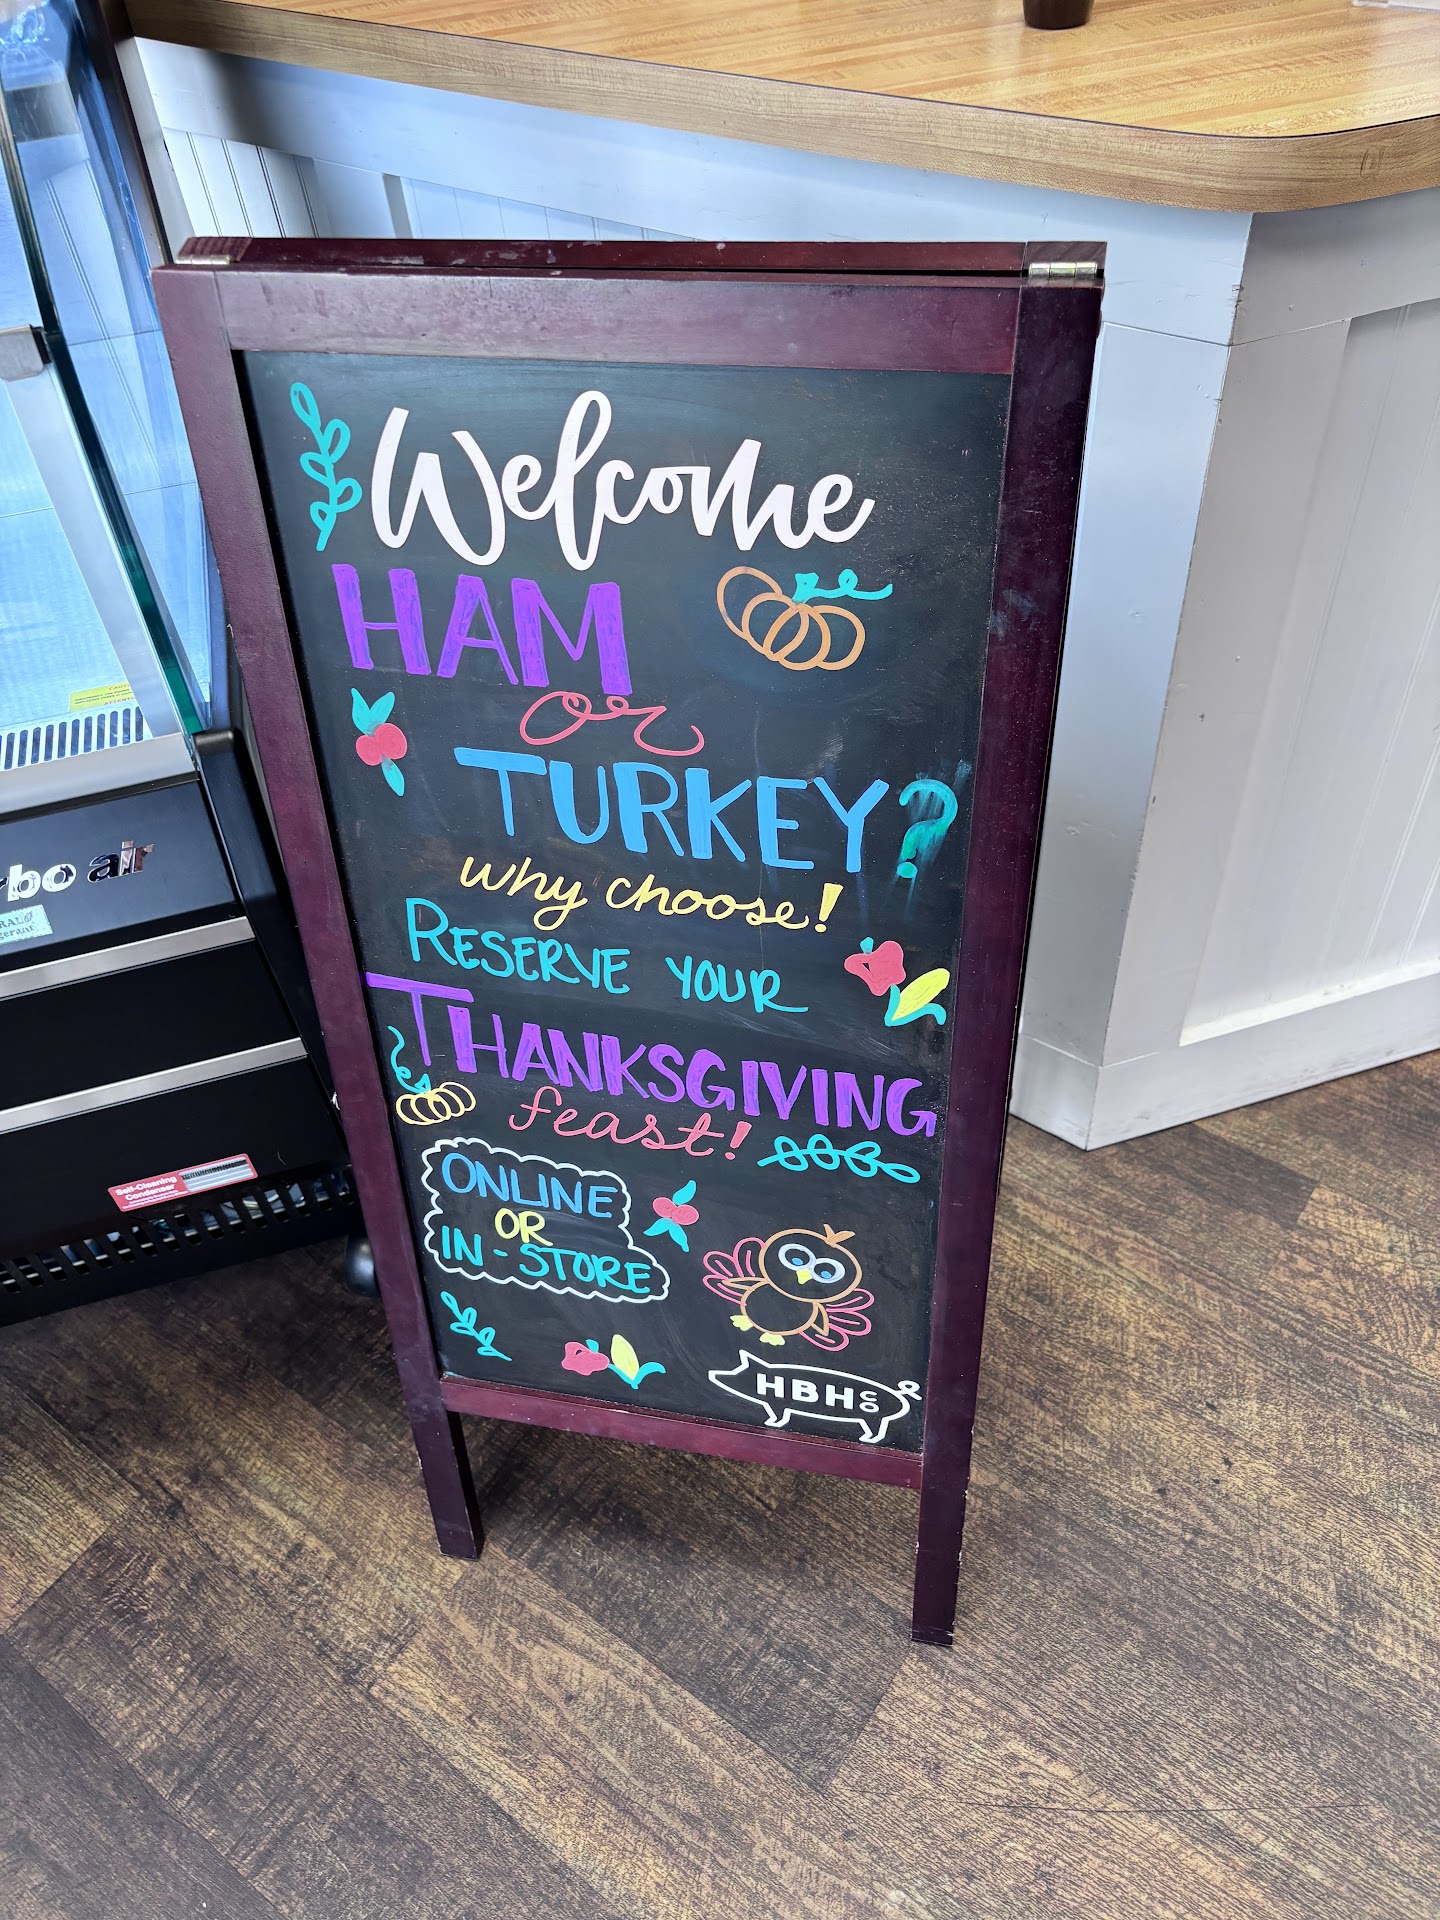 Welcome
HAM
or
TURKEY?
why choose!
RESERVE YOUR
THANKSGIVING
feast!
ONLINE
OR
IN-STORE
HBH CO
air
Self-Cleaning
Condenser